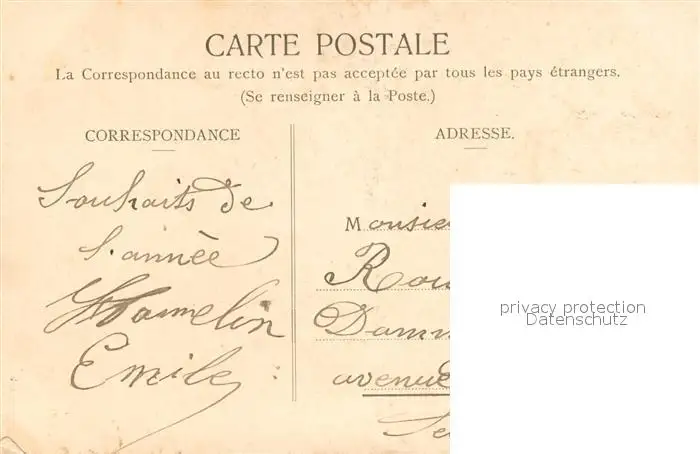 CARTE POSTALE
La Correspondance au recto n'est pas acceptée par tous les pays étrangers.
(Se renseigner à la Poste.)
CORRESPONDANCE
Souhaits de
l'année
Hamelin
Emile
ADRESSE.
Monsie
Rou
Dam
avenue
Se
privacy protection
Datenschutz